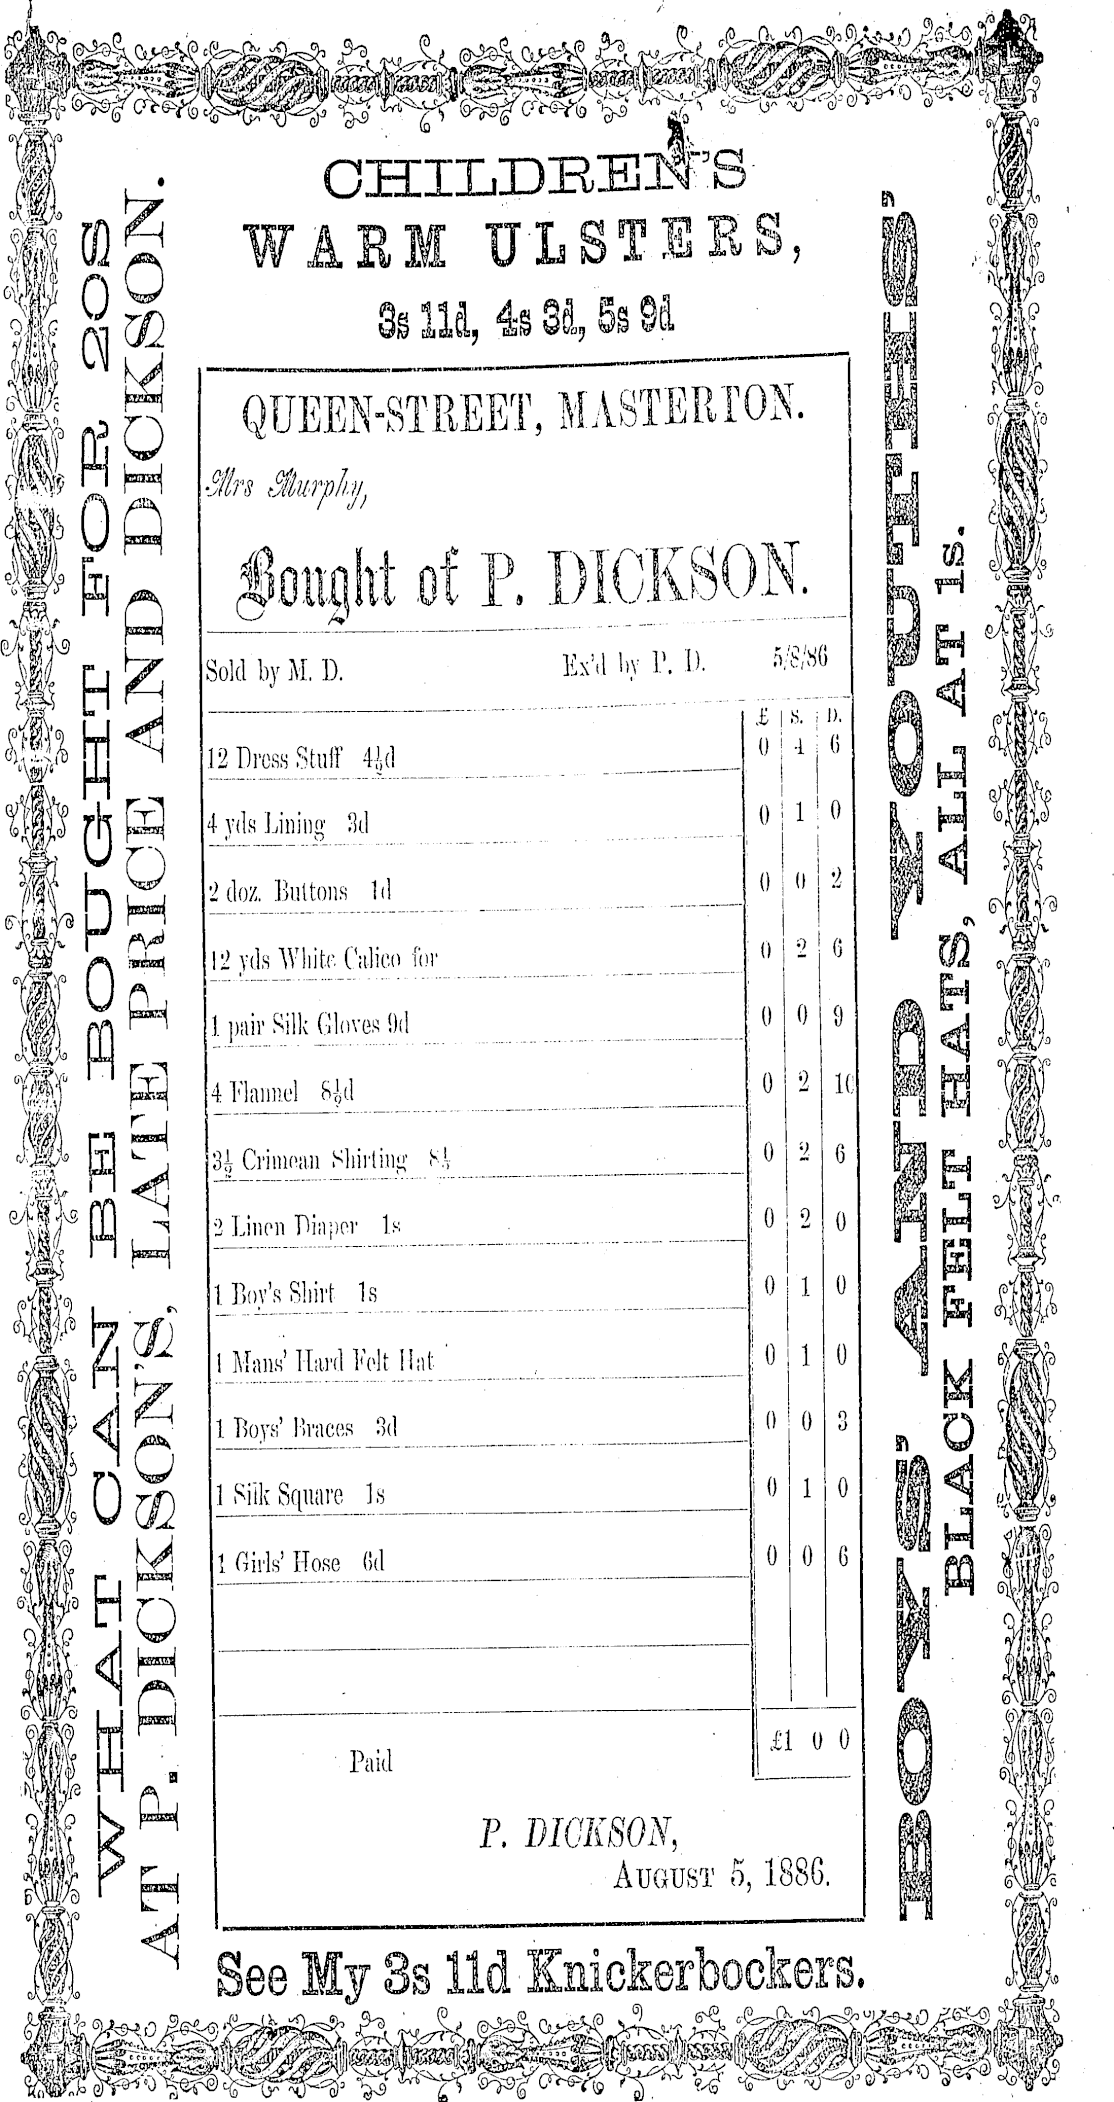 CHILDREN'S
WARM ULSTERS,
3s 11d, 4s 3d, 5s 9d
WHAT CAN BE BOUGHT FOR 20S
AT P. DICKSON'S, LATE PRICE AND DICKSON.
QUEEN-STREET, MASTERTON.
Mrs Murphy,
Bought of P. DICKSON.
Sold by M. D. Ex'd by P. D. 5/8/86
£ S. D.
12 Dress Stuff 4½d 0 4 6
4 yds Lining 3d 0 1 0
2 doz. Buttons 1d 0 0 2
12 yds White Calico for 0 2 6
1 pair Silk Gloves 9d 0 0 9
4 Flannel 8½d 0 2 10
3½ Crimean Shirting 8½ 0 2 6
2 Linen Diaper 1s 0 2 0
1 Boy's Shirt 1s 0 1 0
1 Mans' Hard Felt Hat 0 1 0
1 Boys' Braces 3d 0 0 3
1 Silk Square 1s 0 1 0
1 Girls' Hose 6d 0 0 6
£1 0 0
Paid
P. DICKSON,
AUGUST 5, 1886.
BOYS' AND YOUTHS'
BLACK FELT HATS, ALL AT 1s.
See My 3s 11d Knickerbockers.